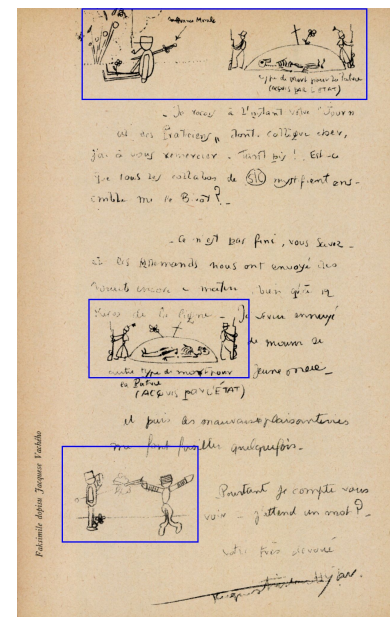 Type de Mort pour la Patrie
(ACQUIS PAR L'ÉTAT)
- Je reçois à l'instant votre "Journ
al des Praticiens", dont, collègue cher,
j'ai à vous remercier - Tant pis! Est-ce
que tous les collabos de SIC mystifient ens-
emble Mr P. Birot?_
- Ce n'est pas fini, vous savez -
et les Allemands nous ont envoyé des
encore ce matin bien qu'à
de la ligne - Je serai ennuyé
de mourir si
jeune
autre type de mort pour
la Patrie
(ACQUIS PAR L'ÉTAT)
et puis les mauvaises plaisanteries
me font quelquefois -
Pourtant je compte vous
voir - j'attend un mot?_
votre très dévoué
Faksimile dopisu Jacquese Vachého